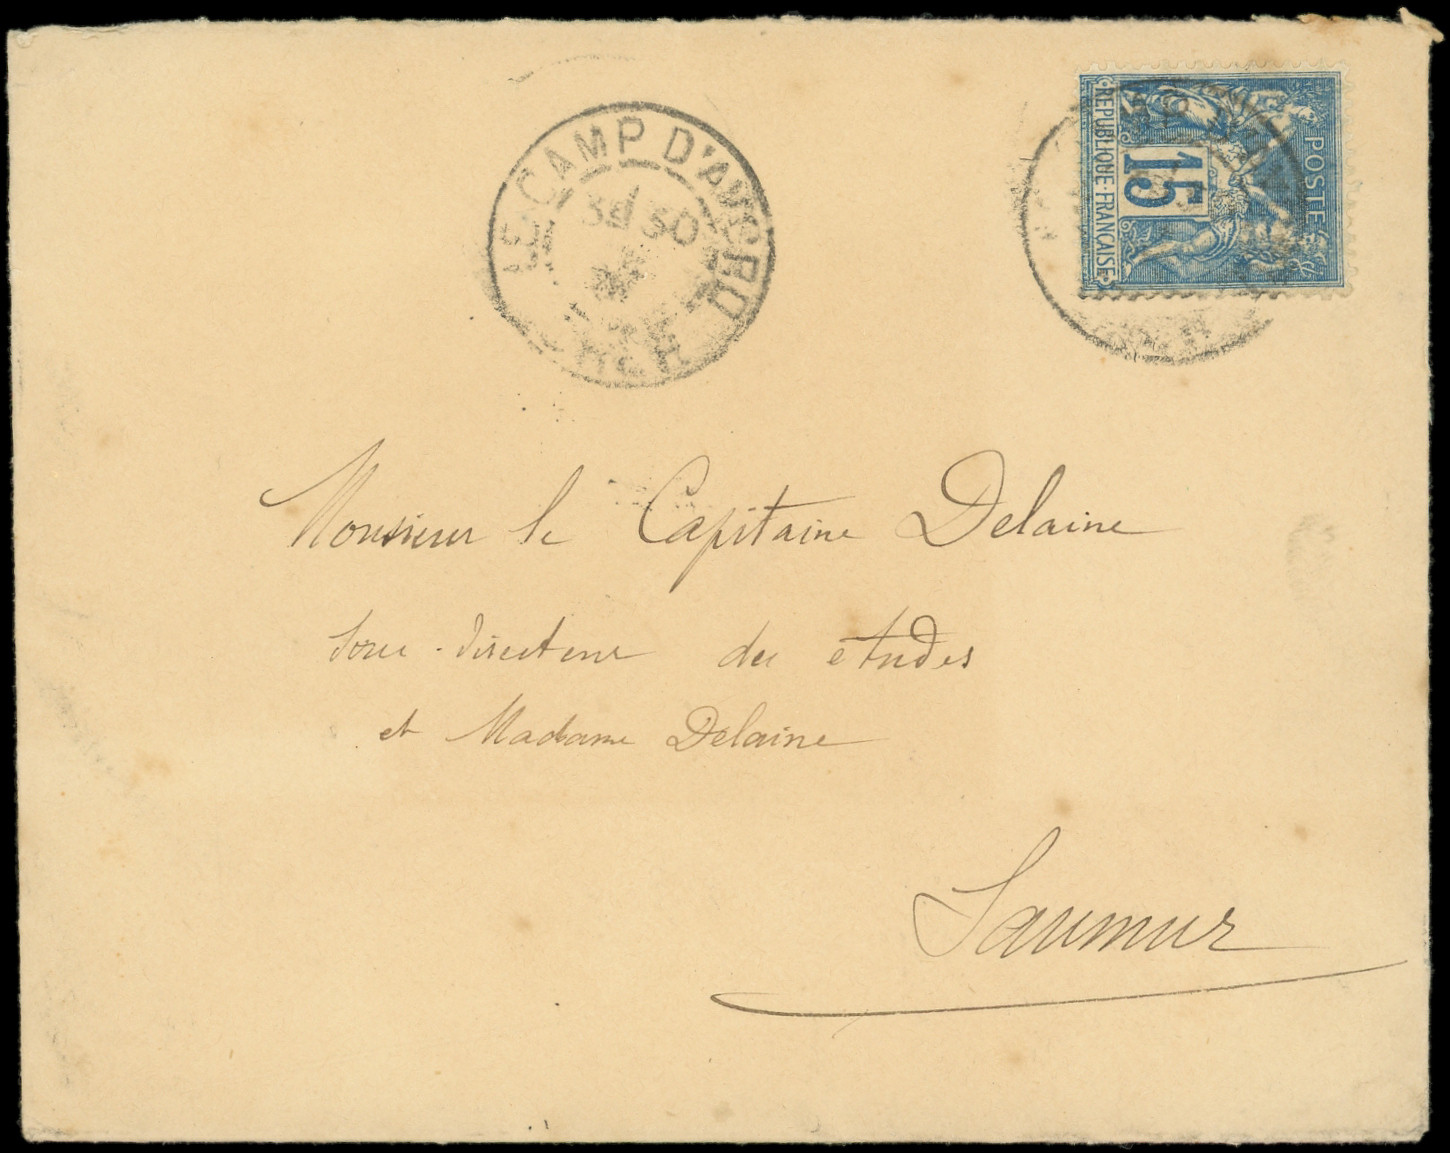 LE CAMP D'AVORD
CHER
REPUBLIQUE FRANCAISE
15
POSTES
Monsieur le Capitaine Delaine
sous-directeur des études
et Madame Delaine
Saumur